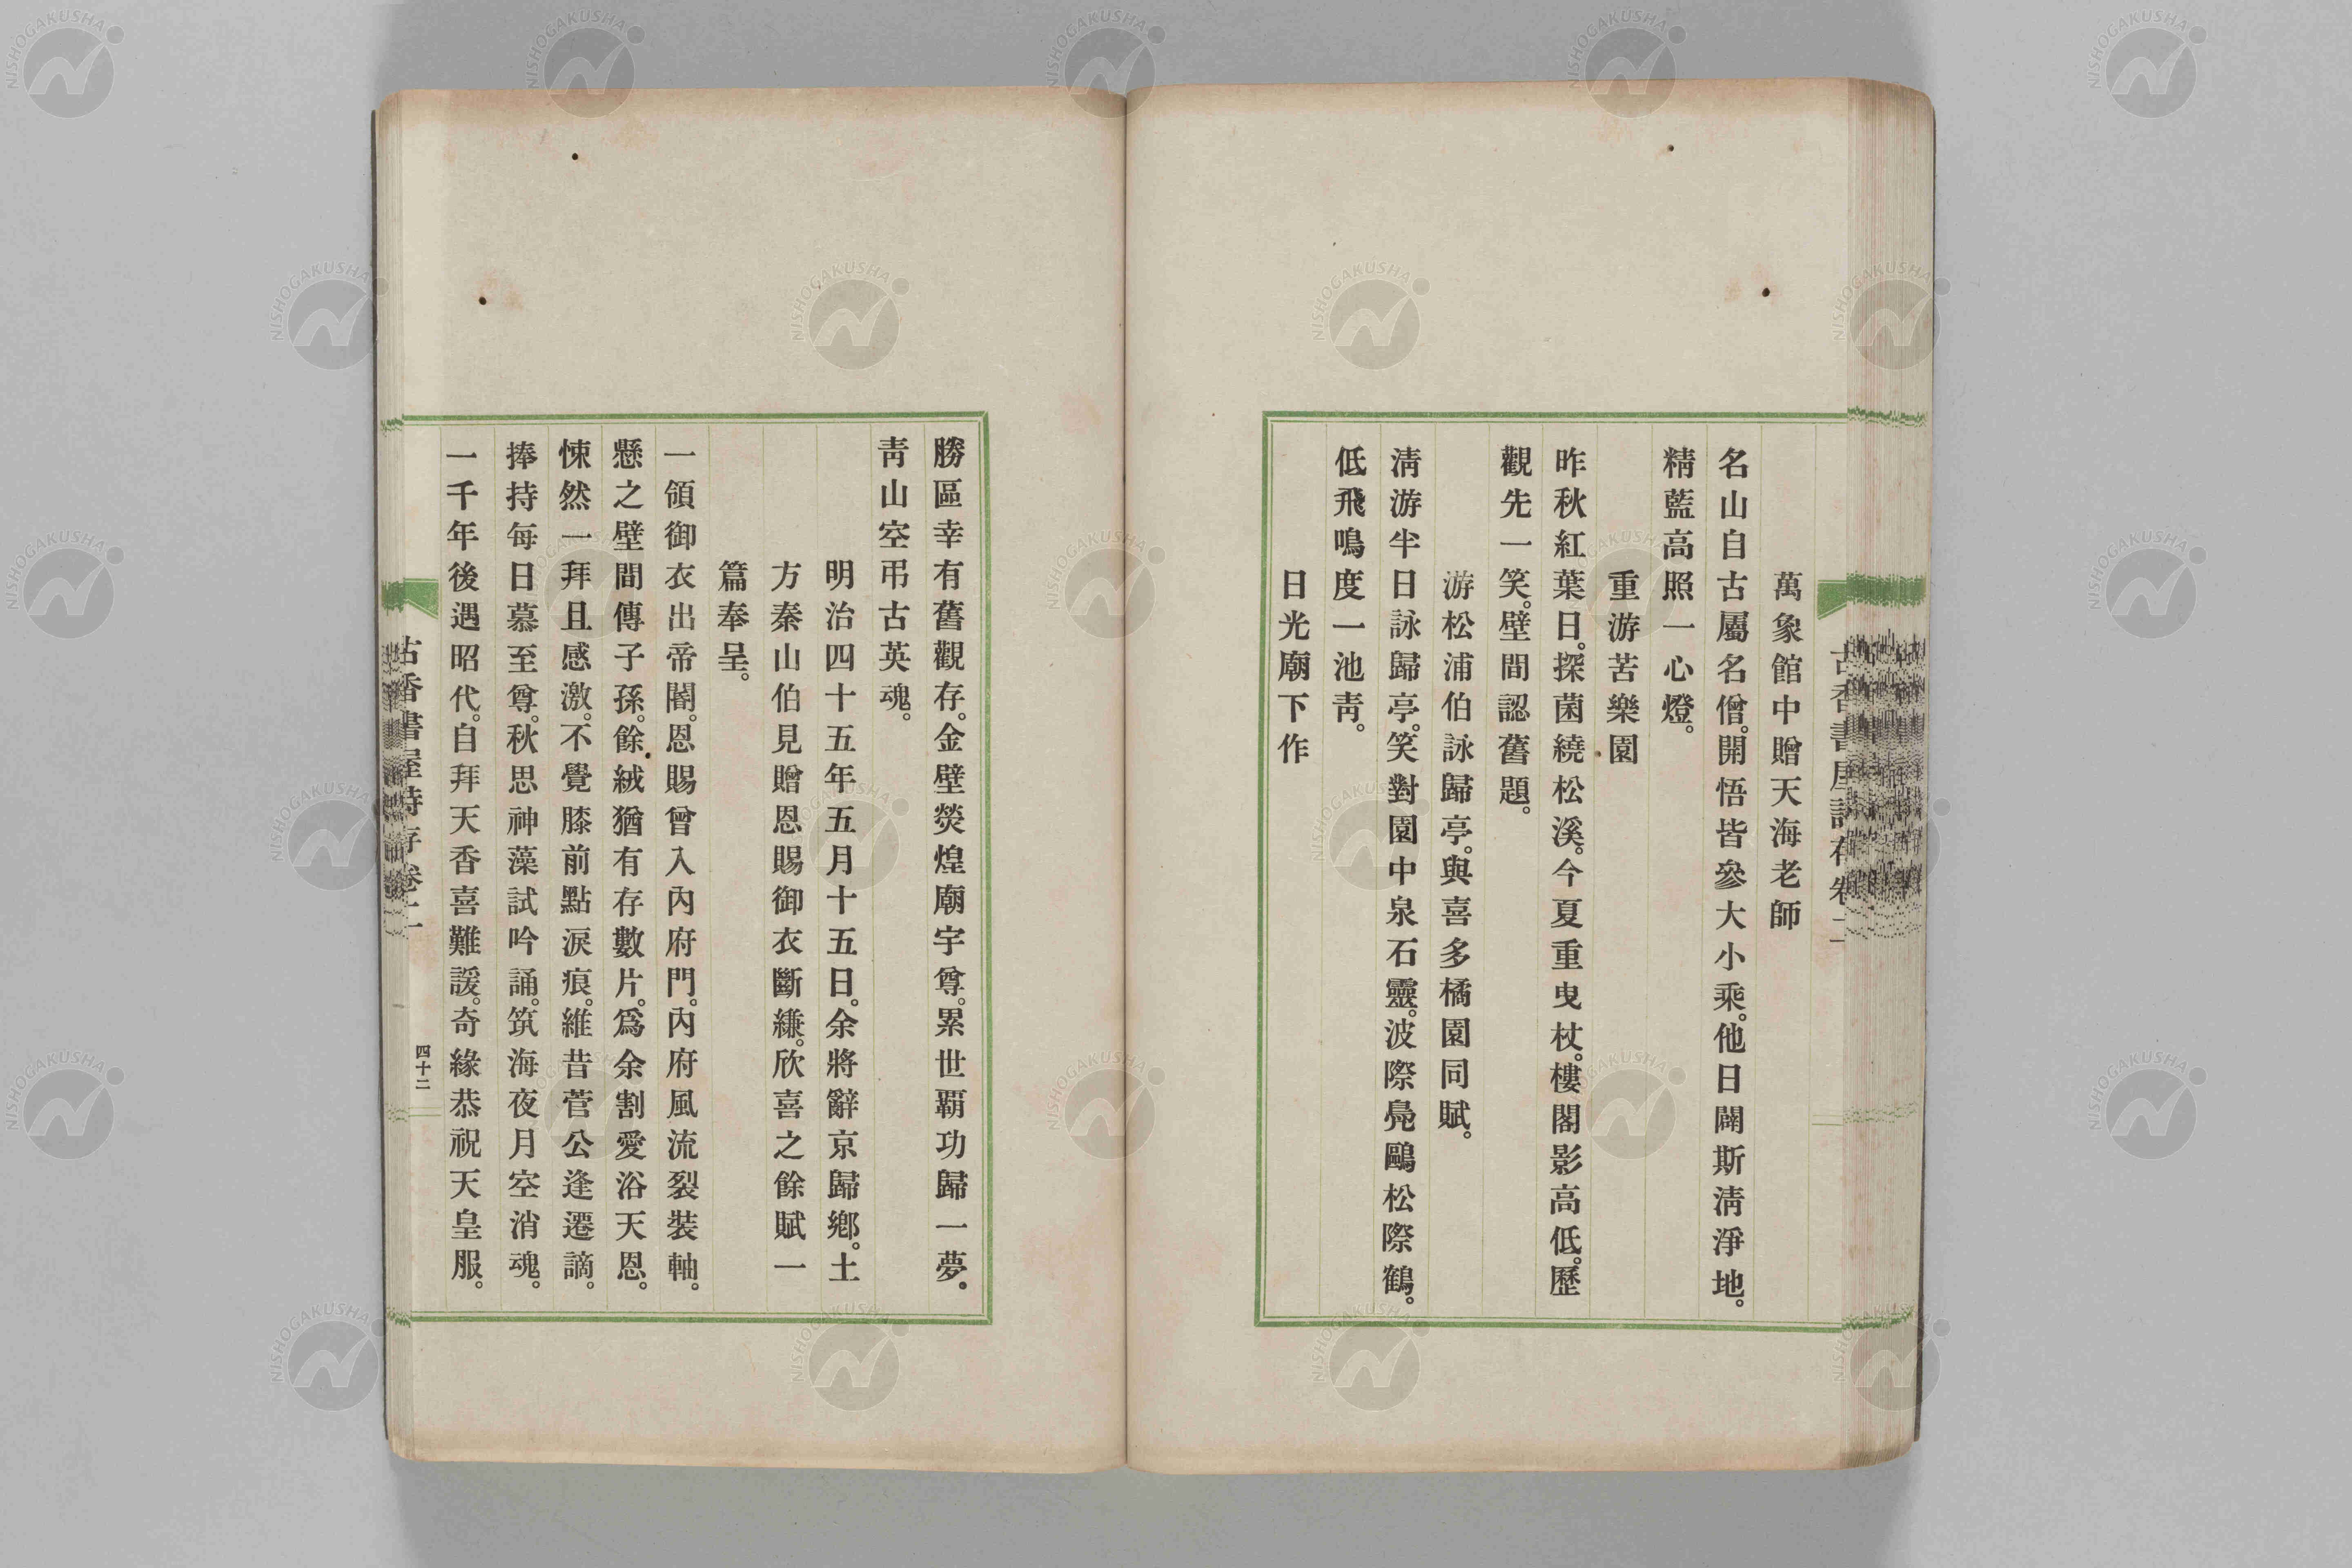 萬象館中贈天海老師
名山自古屬名僧。開悟皆參大小乘。他日闢斯淸淨地。
精藍高照一心燈。
重游苦樂園
昨秋紅葉日。探菌繞松溪。今夏重曳杖。樓閣影高低。歷
觀先一笑。壁間認舊題。
游松浦伯詠歸亭。與喜多橘園同賦。
淸游半日詠歸亭。笑對園中泉石靈。波際鳧鷗松際鶴。
低飛鳴度一池靑。
日光廟下作
勝區幸有舊觀存。金壁熒煌廟宇尊。累世覇功歸一夢。
靑山空弔古英魂。
明治四十五年五月十五日。余將辭京歸鄕。土
方秦山伯見贈恩賜御衣斷縑。欣喜之餘賦一
篇奉呈。
一領御衣出帝閽。恩賜曾入內府門。內府風流裂裝軸。
懸之壁間傳子孫。餘絨猶有存數片。爲余割愛浴天恩。
悚然一拜且感激。不覺膝前點淚痕。維昔菅公逢遷謫。
捧持每日慕至尊。秋思神藻試吟誦。筑海夜月空消魂。
一千年後遇昭代。自拜天香喜難諼。奇緣恭祝天皇服。
古香書屋詩存卷二
四十二
NISHOGAKUSHA